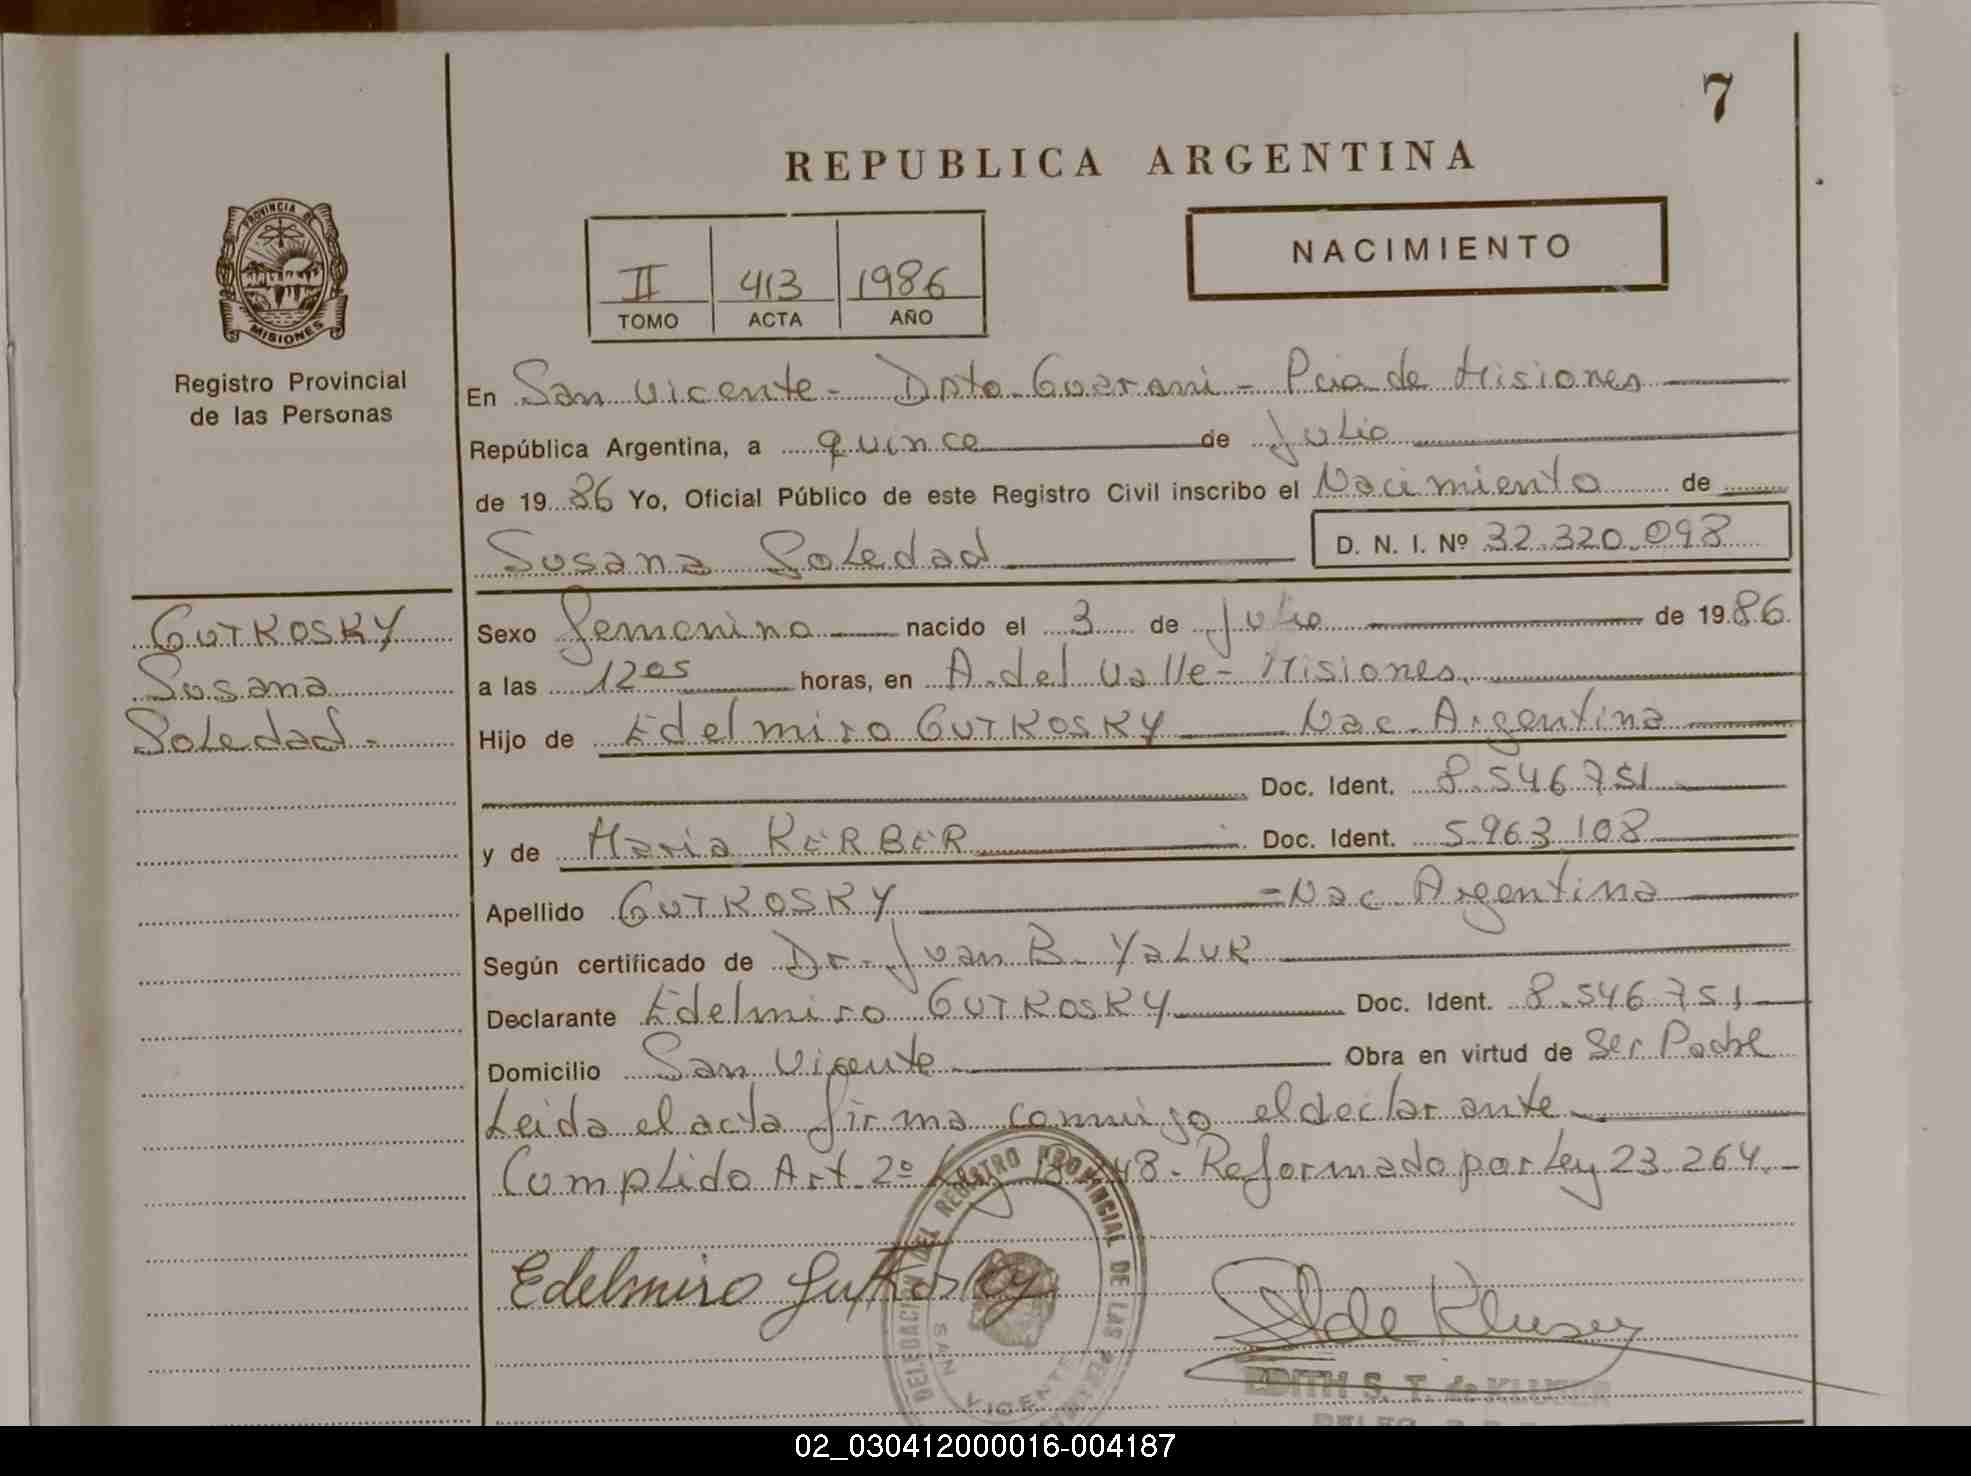 7
REPUBLICA ARGENTINA
PROVINCIA DE
MISIONES
Registro Provincial
de las Personas
II 413 1986
TOMO ACTA AÑO
NACIMIENTO
En San Vicente - Dpto Guarani - Pcia de Misiones
República Argentina, a quince de Julio
de 1986 Yo, Oficial Público de este Registro Civil inscribo el Nacimiento de
Susana Soledad D. N. I. Nº 32.320.098
GUTKOSKY
Susana
Soledad -
Sexo femenino nacido el 3 de Julio de 1986
a las 12 05 horas, en A. del Valle - Misiones.
Hijo de Edelmiro GUTKOSKY Nac. Argentina
Doc. Ident. 8.546.751
y de Maria KERBER Doc. Ident. 5963.108
Apellido GUTKOSKY = Nac. Argentina
Según certificado de Dr. Juan B. YaLUK
Declarante Edelmiro GUTKOSKY Doc. Ident. 8.546.751
Domicilio San Vicente Obra en virtud de Ser Padre
Leida el acta firma conmigo el declarante
Cumplido Art. 2º Ley Reformado por Ley 23.264.-
Edelmiro Gutkosky
DELEGACION DEL REGISTRO PROVINCIAL DE LAS PERSONAS
SAN VICENTE
EDITH S. T. de
02_030412000016-004187